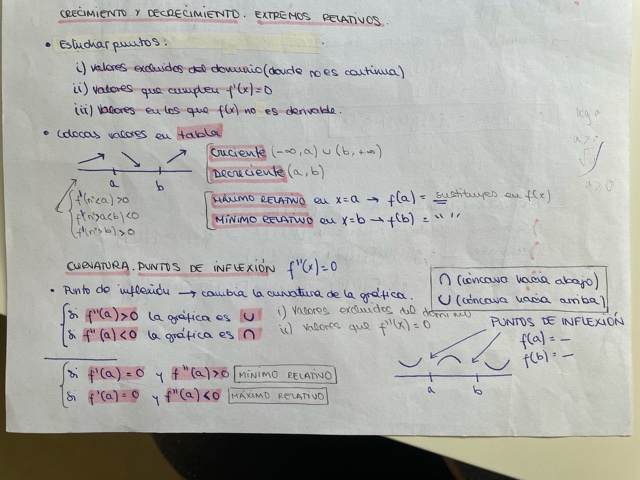 CRECIMIENTO Y DECRECIMIENTO. EXTREMOS RELATIVOS.
• Estudiar puntos:
i) valores excluidos del dominio (donde no es continua)
ii) valores que cumplen f'(x)=0
iii) valores en los que f(x) no es derivable.
• Colocas valores en tabla
a b
creciente (-∞, a) ∪ (b, +∞)
Decreciente (a, b)
f'(n<a) >0
f'(n>a<b) <0
f'(n>b) >0
MÁXIMO RELATIVO en x=a → f(a) = sustituyes en f(x)
MÍNIMO RELATIVO en x=b → f(b) = " "
CURVATURA. PUNTOS DE INFLEXIÓN f''(x)=0
• Punto de inflexión → cambia la curvatura de la gráfica.
∩ (cóncava hacia abajo)
∪ (cóncava hacia arriba)
si f''(a)>0 la gráfica es ∪
si f''(a)<0 la gráfica es ∩
i) valores excluidos del dominio
ii) valores que f''(x) = 0
PUNTOS DE INFLEXIÓN
f(a) = —
f(b) = —
a b
si f'(a)=0 y f''(a)>0 MÍNIMO RELATIVO
si f'(a)=0 y f''(a)<0 MÁXIMO RELATIVO